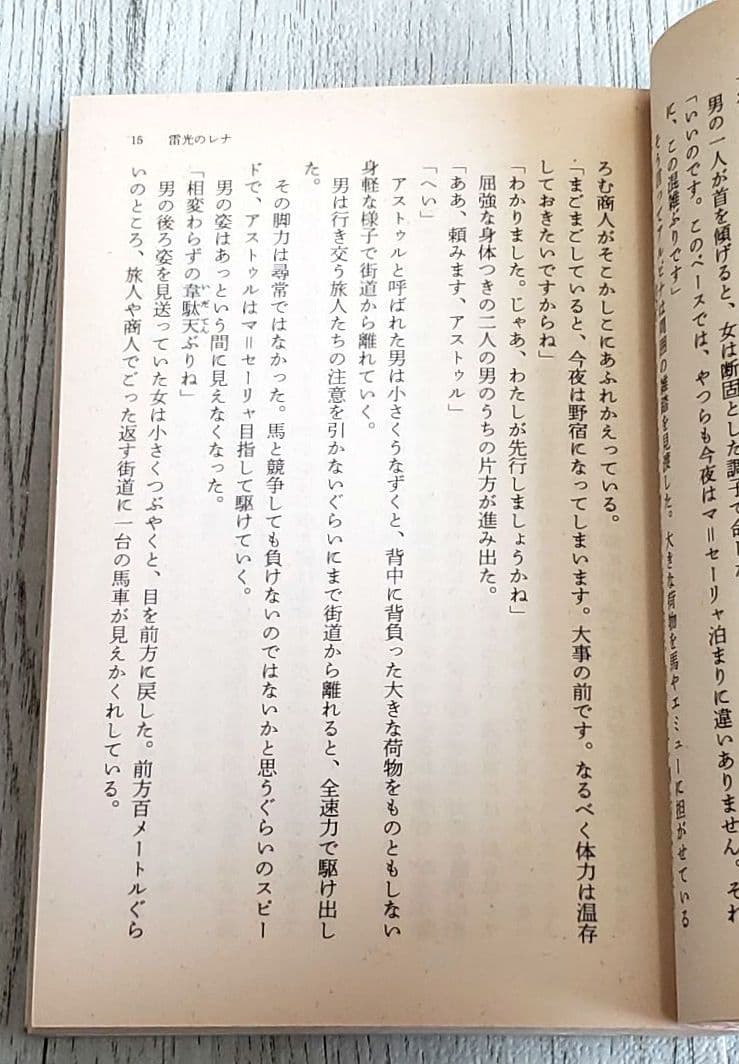 男の一人が首を傾げると、女は断固とした調子で
「いいのです。このペースでは、やつらも今夜はマ＝セーリャ泊まりに違いありません。それ
に、この混雑ぶりです」
は周囲の雑踏を見渡した。大きな荷物を馬やエミューに担がせている
15　雷光のレナ
ろむ商人がそこかしこにあふれかえっている。
「まごまごしていると、今夜は野宿になってしまいます。大事の前です。なるべく体力は温存
しておきたいですからね」
「わかりました。じゃあ、わたしが先行しましょうかね」
屈強な身体つきの二人の男のうちの片方が進み出た。
「ああ、頼みます、アストゥル」
「へい」
アストゥルと呼ばれた男は小さくうなずくと、背中に背負った大きな荷物をものともしない
身軽な様子で街道から離れていく。
男は行き交う旅人たちの注意を引かないぐらいにまで街道から離れると、全速力で駆け出し
た。
その脚力は尋常ではなかった。馬と競争しても負けないのではないかと思うぐらいのスピー
ドで、アストゥルはマ＝セーリャ目指して駆けていく。
男の姿はあっという間に見えなくなった。
「相変わらずの韋駄天ぶりね」
いだてん
男の後ろ姿を見送っていた女は小さくつぶやくと、目を前方に戻した。前方百メートルぐら
いのところ、旅人や商人でごった返す街道に一台の馬車が見えかくれしている。